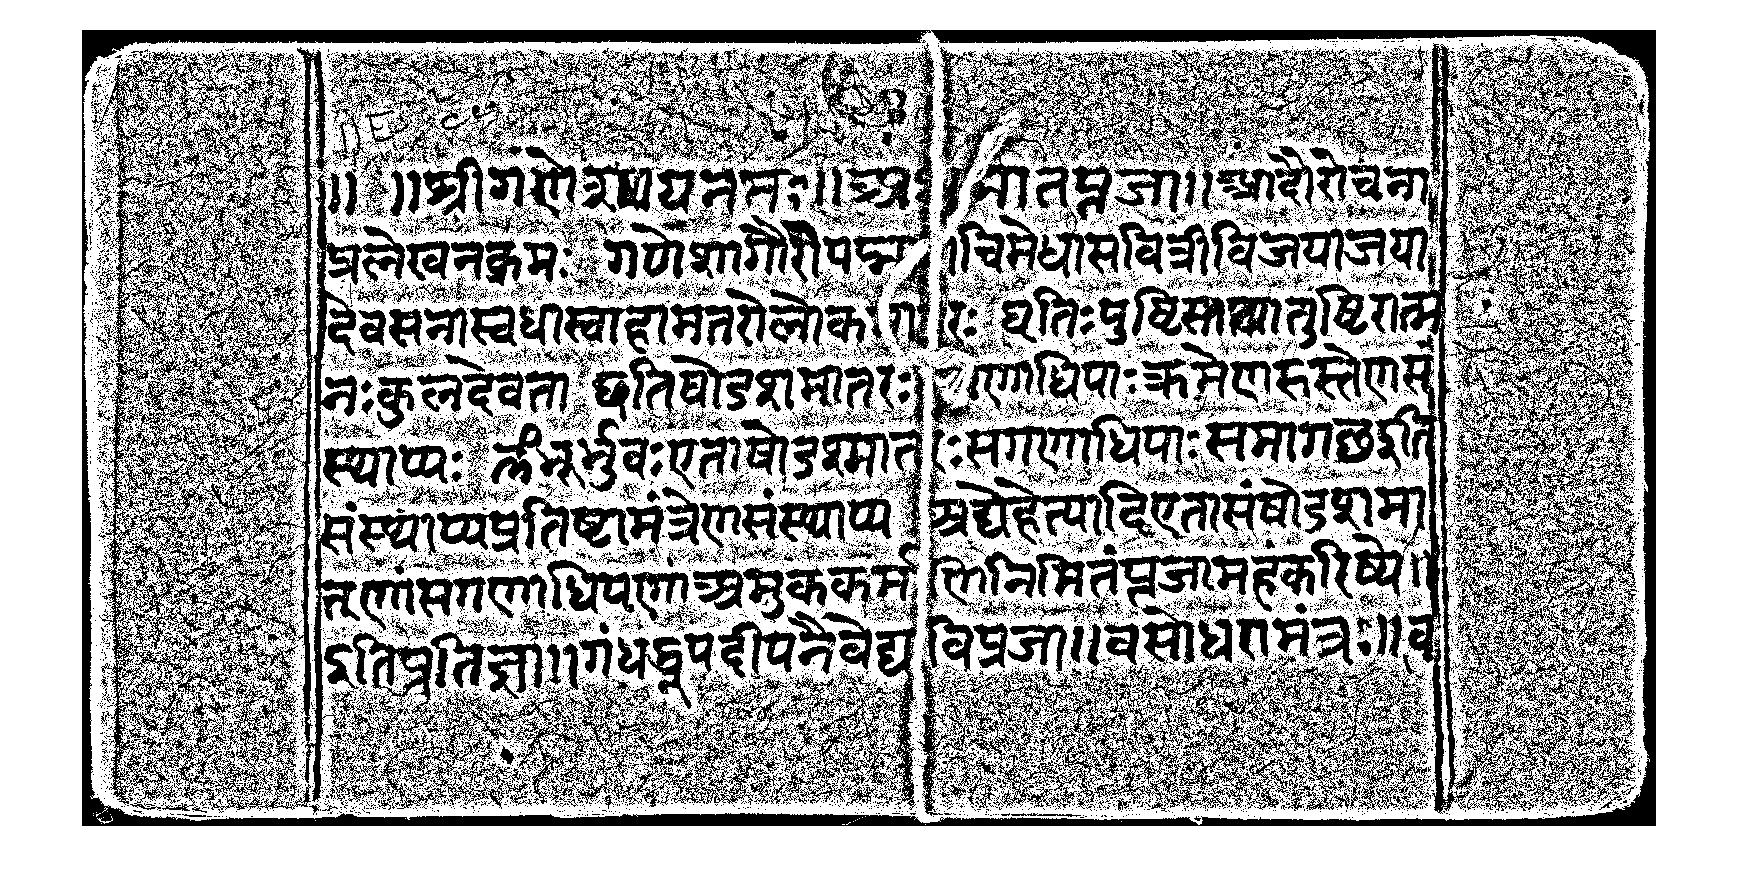 ॥ ॥श्रीगंणेशाययनमः॥अथ मातपूजा॥आदौरोचना
प्रलेखनक्रमः गणेशगौरीपद्मा चिमेधासवित्रीविजयाजया
देवसनास्वधास्वाहामतरोलोक रः घतिःपुष्टिस्तथातुष्टिरात्म
नःकुलदेवता इतिषोडशमातरः गणाधिपाःक्रमेणहस्तेणसं
स्थाप्यः ॐभूर्भुवःएताषोडश्मातरःसगणाधिपाःसमागछइति
संस्थाप्यप्रतिष्टामंत्रेणसंस्थाप्य अद्येहेत्यादिएतासंषोडशमा
तॄणांसगणाधिपणाअमुककर्म निमितंपूजामहंकरिष्ये॥
इतिप्रतिज्ञा॥।गंधधूपदीपनैवेद्य विप्रजा॥वसोधरामंत्रः॥व